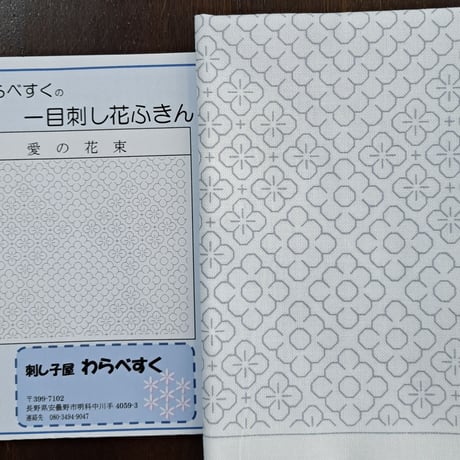 らべすくの
一目刺し花ふきん
愛の花束
刺し子屋 わらべすく
〒399-7102
長野県安曇野市明科中川手 4059-3
連絡先 080-3494-9047